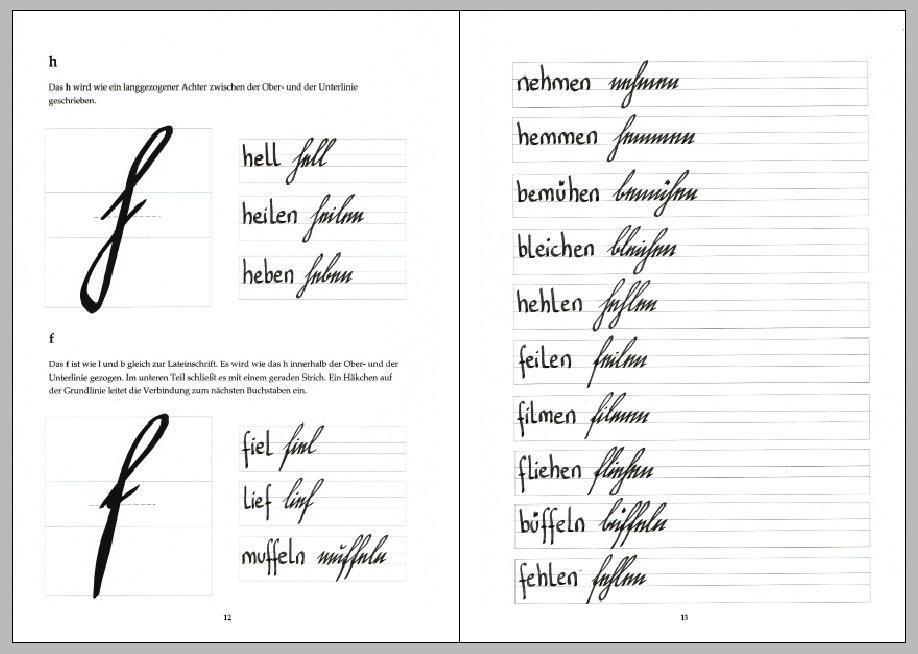 h
Das h wird wie ein langgezogener Achter zwischen der Ober- und der Unterlinie
geschrieben.
h
hell hell
heilen heilen
heben heben
f
Das f ist wie l und b gleich zur Lateinschrift. Es wird wie das h innerhalb der Ober- und der
Unterlinie gezogen. Im unteren Teil schließt es mit einem geraden Strich. Ein Häkchen auf
der Grundlinie leitet die Verbindung zum nächsten Buchstaben ein.
f
fiel fiel
lief lief
muffeln muffeln
12
nehmen nehmen
hemmen hemmen
bemühen bemühen
bleichen bleichen
hehlen hehlen
feilen feilen
filmen filmen
fliehen fliehen
büffeln büffeln
fehlen fehlen
13